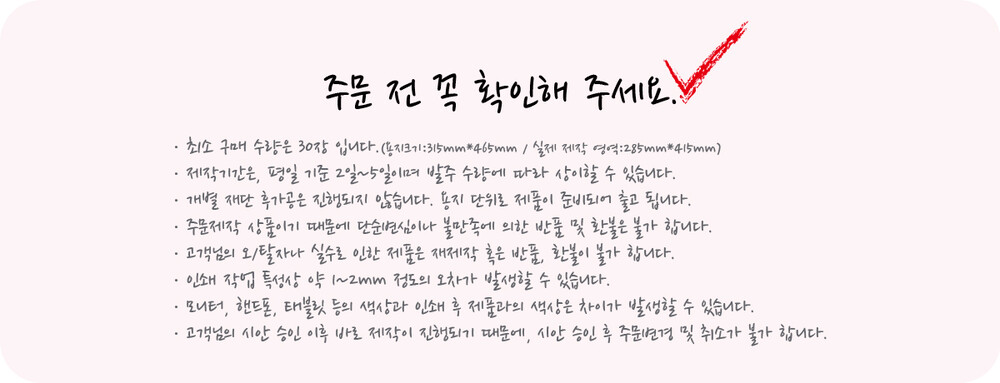 주문 전 꼭 확인해 주세요.
· 최소 구매 수량은 30장 입니다.(용지크기:315mm*465mm / 실제 제작 영역:285mm*415mm)
· 제작기간은, 평일 기준 2일~5일이며 발주 수량에 따라 상이할 수 있습니다.
· 개별 재단 후가공은 진행되지 않습니다. 용지 단위로 제품이 준비되어 출고 됩니다.
· 주문제작 상품이기 때문에 단순변심이나 불만족에 의한 반품 및 환불은 불가 합니다.
· 고객님의 오/탈자나 실수로 인한 제품은 재제작 혹은 반품, 환불이 불가 합니다.
· 인쇄 작업 특성상 약 1~2mm 정도의 오차가 발생할 수 있습니다.
· 모니터, 핸드폰, 태블릿 등의 색상과 인쇄 후 제품과의 색상은 차이가 발생할 수 있습니다.
· 고객님의 시안 승인 이후 바로 제작이 진행되기 때문에, 시안 승인 후 주문변경 및 취소가 불가 합니다.